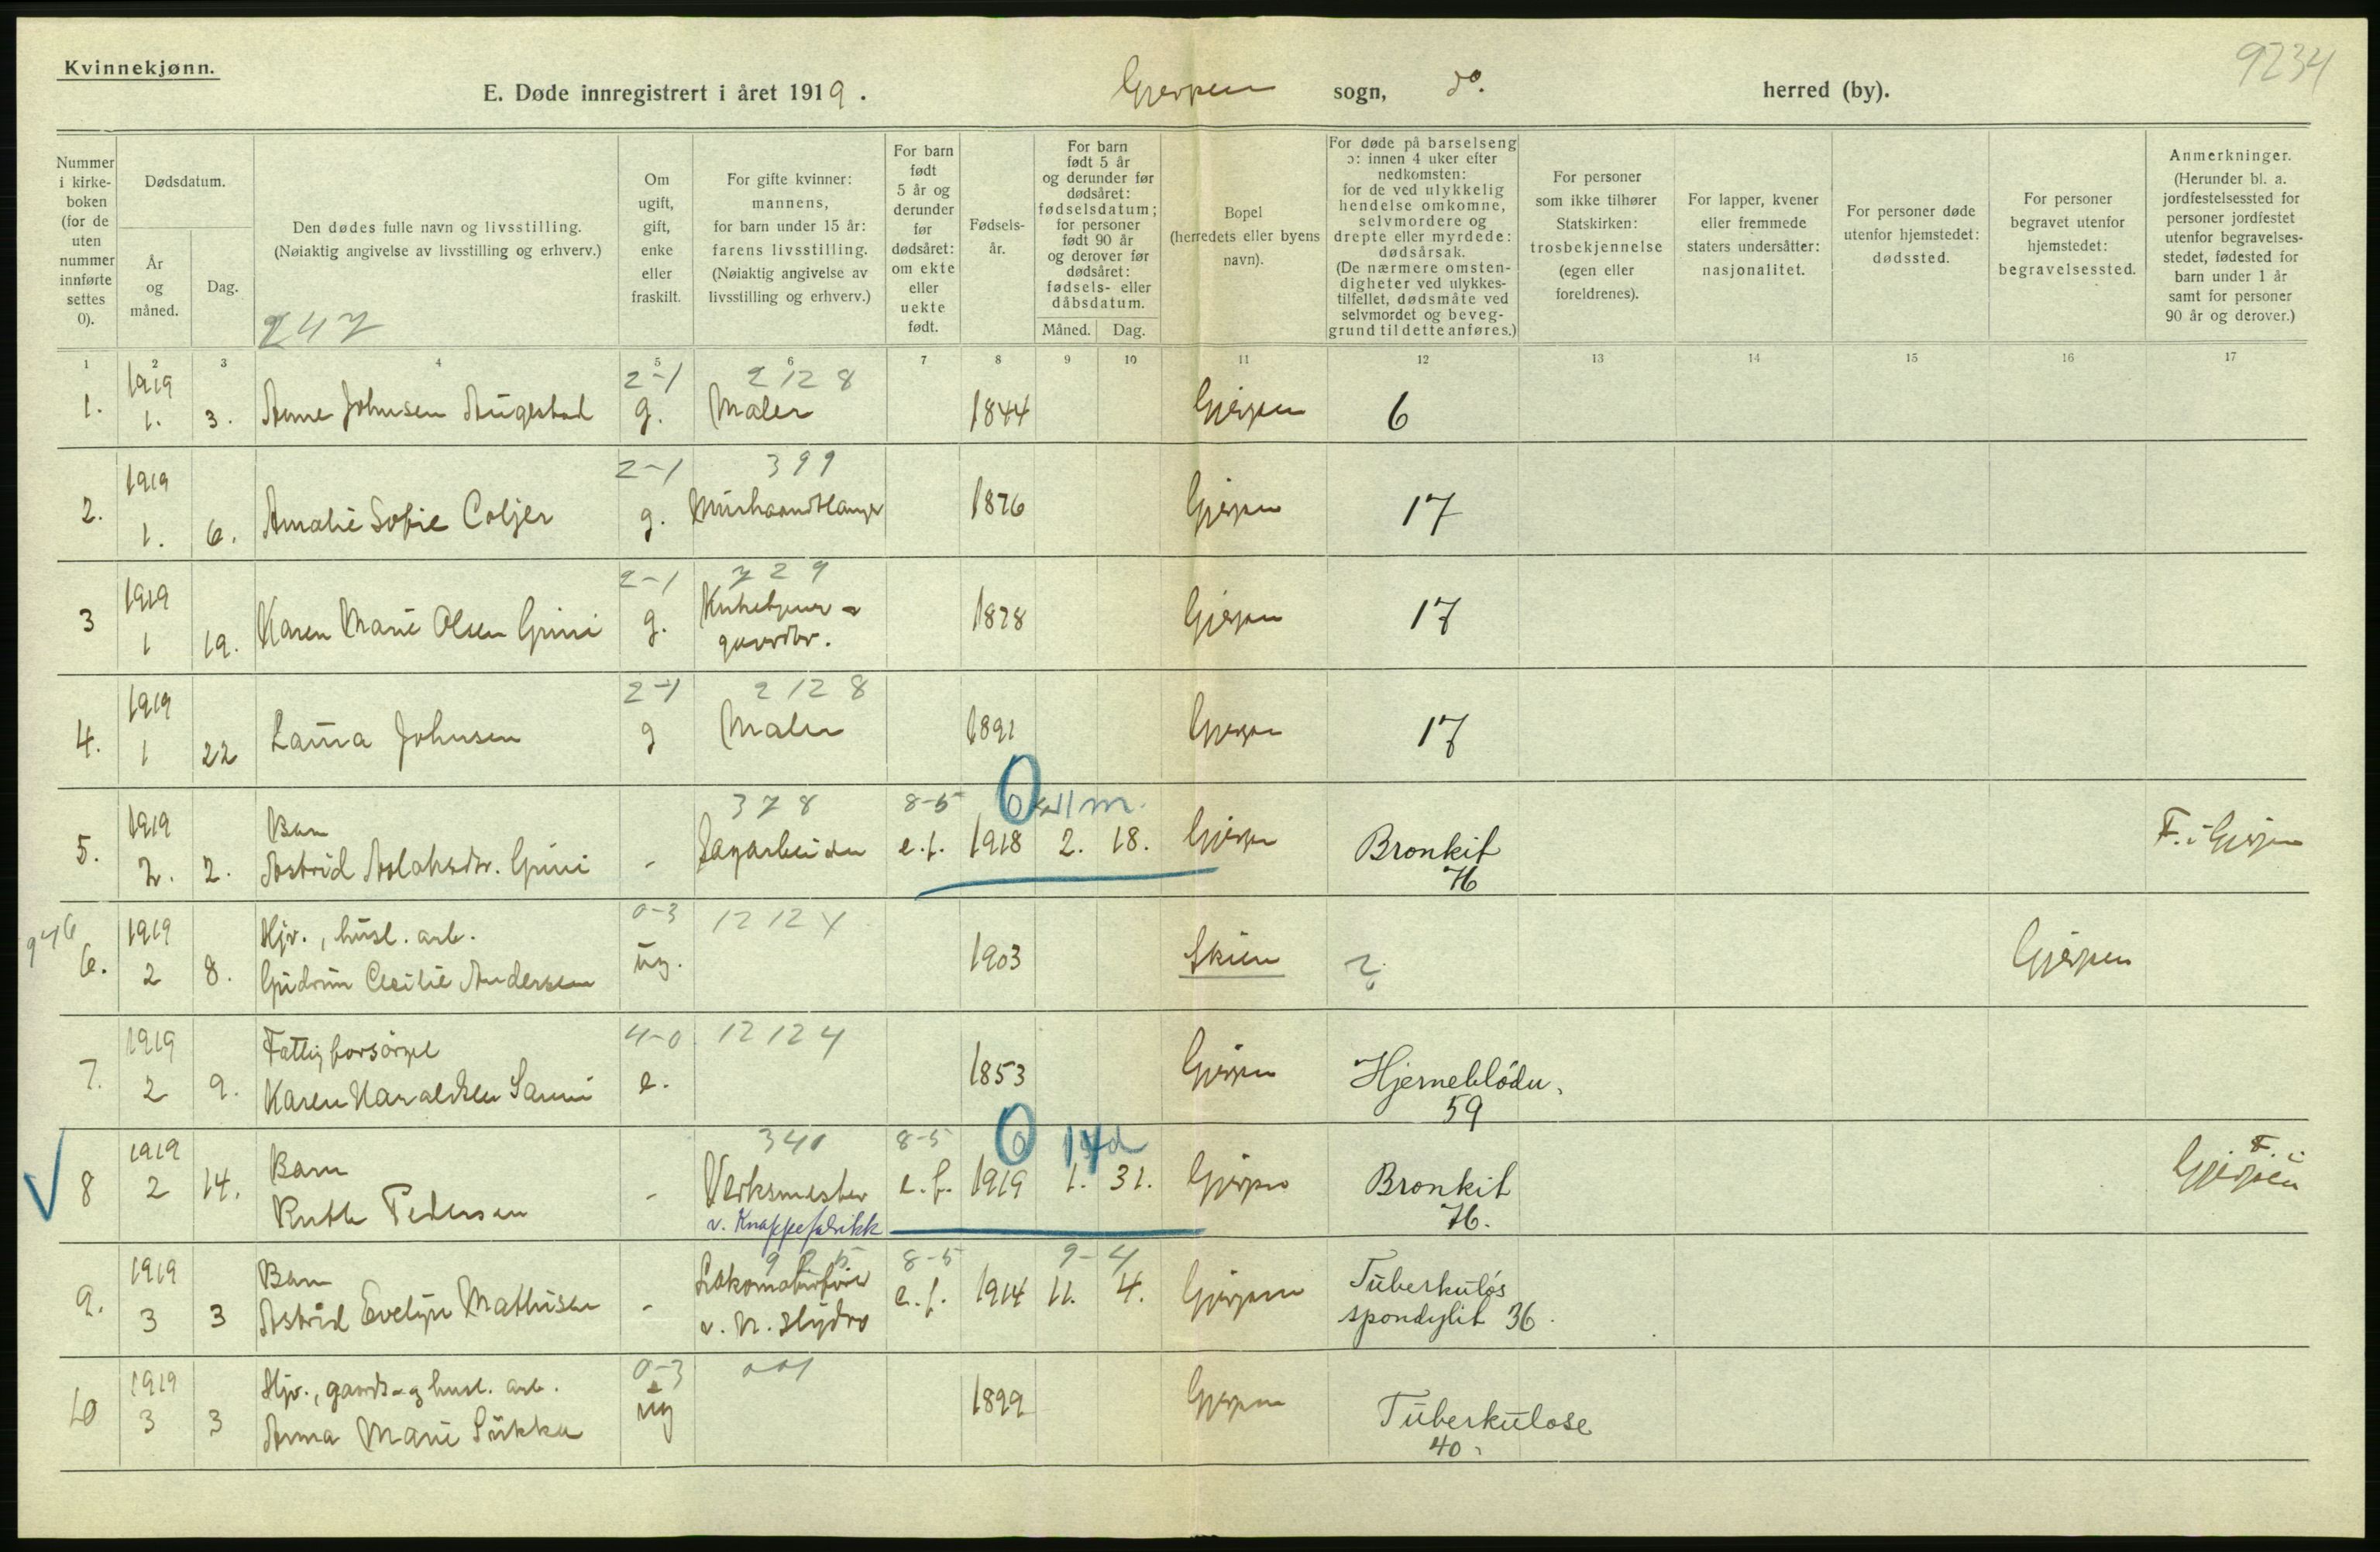 Kvinnekjønn.
9234
E. Døde innregistrert i året 1919. Gjerpen sogn, do. herred (by).
Nummer i kirkeboken (for de uten nummer innførte settes 0).
Dødsdatum.
År og måned.
Dag.
Den dødes fulle navn og livsstilling.
(Nøiaktig angivelse av livsstilling og erhverv.)
247
Om ugift, gift, enke eller fraskilt.
For gifte kvinner: mannens, for barn under 15 år: farens livsstilling. (Nøiaktig angivelse av livsstilling og erhverv.)
For barn født 5 år og derunder før dødsåret: om ekte eller uekte født.
Fødselsår.
For barn født 5 år og derunder før dødsåret: fødselsdatum; for personer født 90 år og derover før dødsåret: fødsels- eller dåbsdatum.
Måned. Dag.
Bopel (herredets eller byens navn).
For døde på barselseng ɔ: innen 4 uker efter nedkomsten: for de ved ulykkelig hendelse omkomne, selvmordere og drepte eller myrdede: dødsårsak. (De nærmere omstendigheter ved ulykkestilfellet, dødsmåte ved selvmordet og beveggrund til dette anføres.)
For personer som ikke tilhører Statskirken: trosbekjennelse (egen eller foreldrenes).
For lapper, kvener eller fremmede staters undersåtter: nasjonalitet.
For personer døde utenfor hjemstedet: dødssted.
For personer begravet utenfor hjemstedet: begravelsessted.
Anmerkninger. (Herunder bl. a. jordfestelsessted for personer jordfestet utenfor begravelsesstedet, fødested for barn under 1 år samt for personer 90 år og derover.)
1 2 3 4 5 6 7 8 9 10 11 12 13 14 15 16 17
1919 2-1 2128
1. 1. 3. Anne Johnsen Augestad g. Maler 1844 Gjerpen 6
1919 2-1 399
2. 1. 6. Amalie Sofie Coljer g. Murhaandtlanger 1876 Gjerpen 17
1919 2-1 729
3 1 19. Karen Marie Olsen Grini g. gaardbr. 1878 Gjerpen 17
1919 2-1 2128
4. 1 22 Laura Johnsen g Maler 1891 Gjerpen 17
1919 Barn 378 8-5 0 11 m.
5. 2. 2. Astrid Aslaksdtr. Grini - Sagarbeider e.f. 1918 2. 18. Gjerpen Bronkit F. i Gjerpen
76
946 1919 Hjv., husl. arb. 0-3 12124
6. 2 8. Gudrun Cecilie Andersen ug. 1903 Skien ? Gjerpen
1919 Fattigforsørget 4-0 12124
7. 2 9. Karen Haraldsen e. 1853 Gjerpen Hjerneblødn.
59
1919 Barn 341 8-5 0 14 d
8 2 14. Ruth Pedersen - Verksmester e.f. 1919 1. 31. Gjerpen Bronkit F. i Gjerpen
v. Knappefabrikk 76.
1919 Barn 8-5 9-4
9. 3 3 Astrid Evelyn Mathisen - Lokomotivfører e.f. 1914 11. 4. Gjerpen Tuberkuløs
v. N. Hydro spondylit 36.
1919 Hjv., gaards- og husl. arb. 0-3 001
10 3 3 Anna Marie ug 1899 Gjerpen Tuberkulose
40.